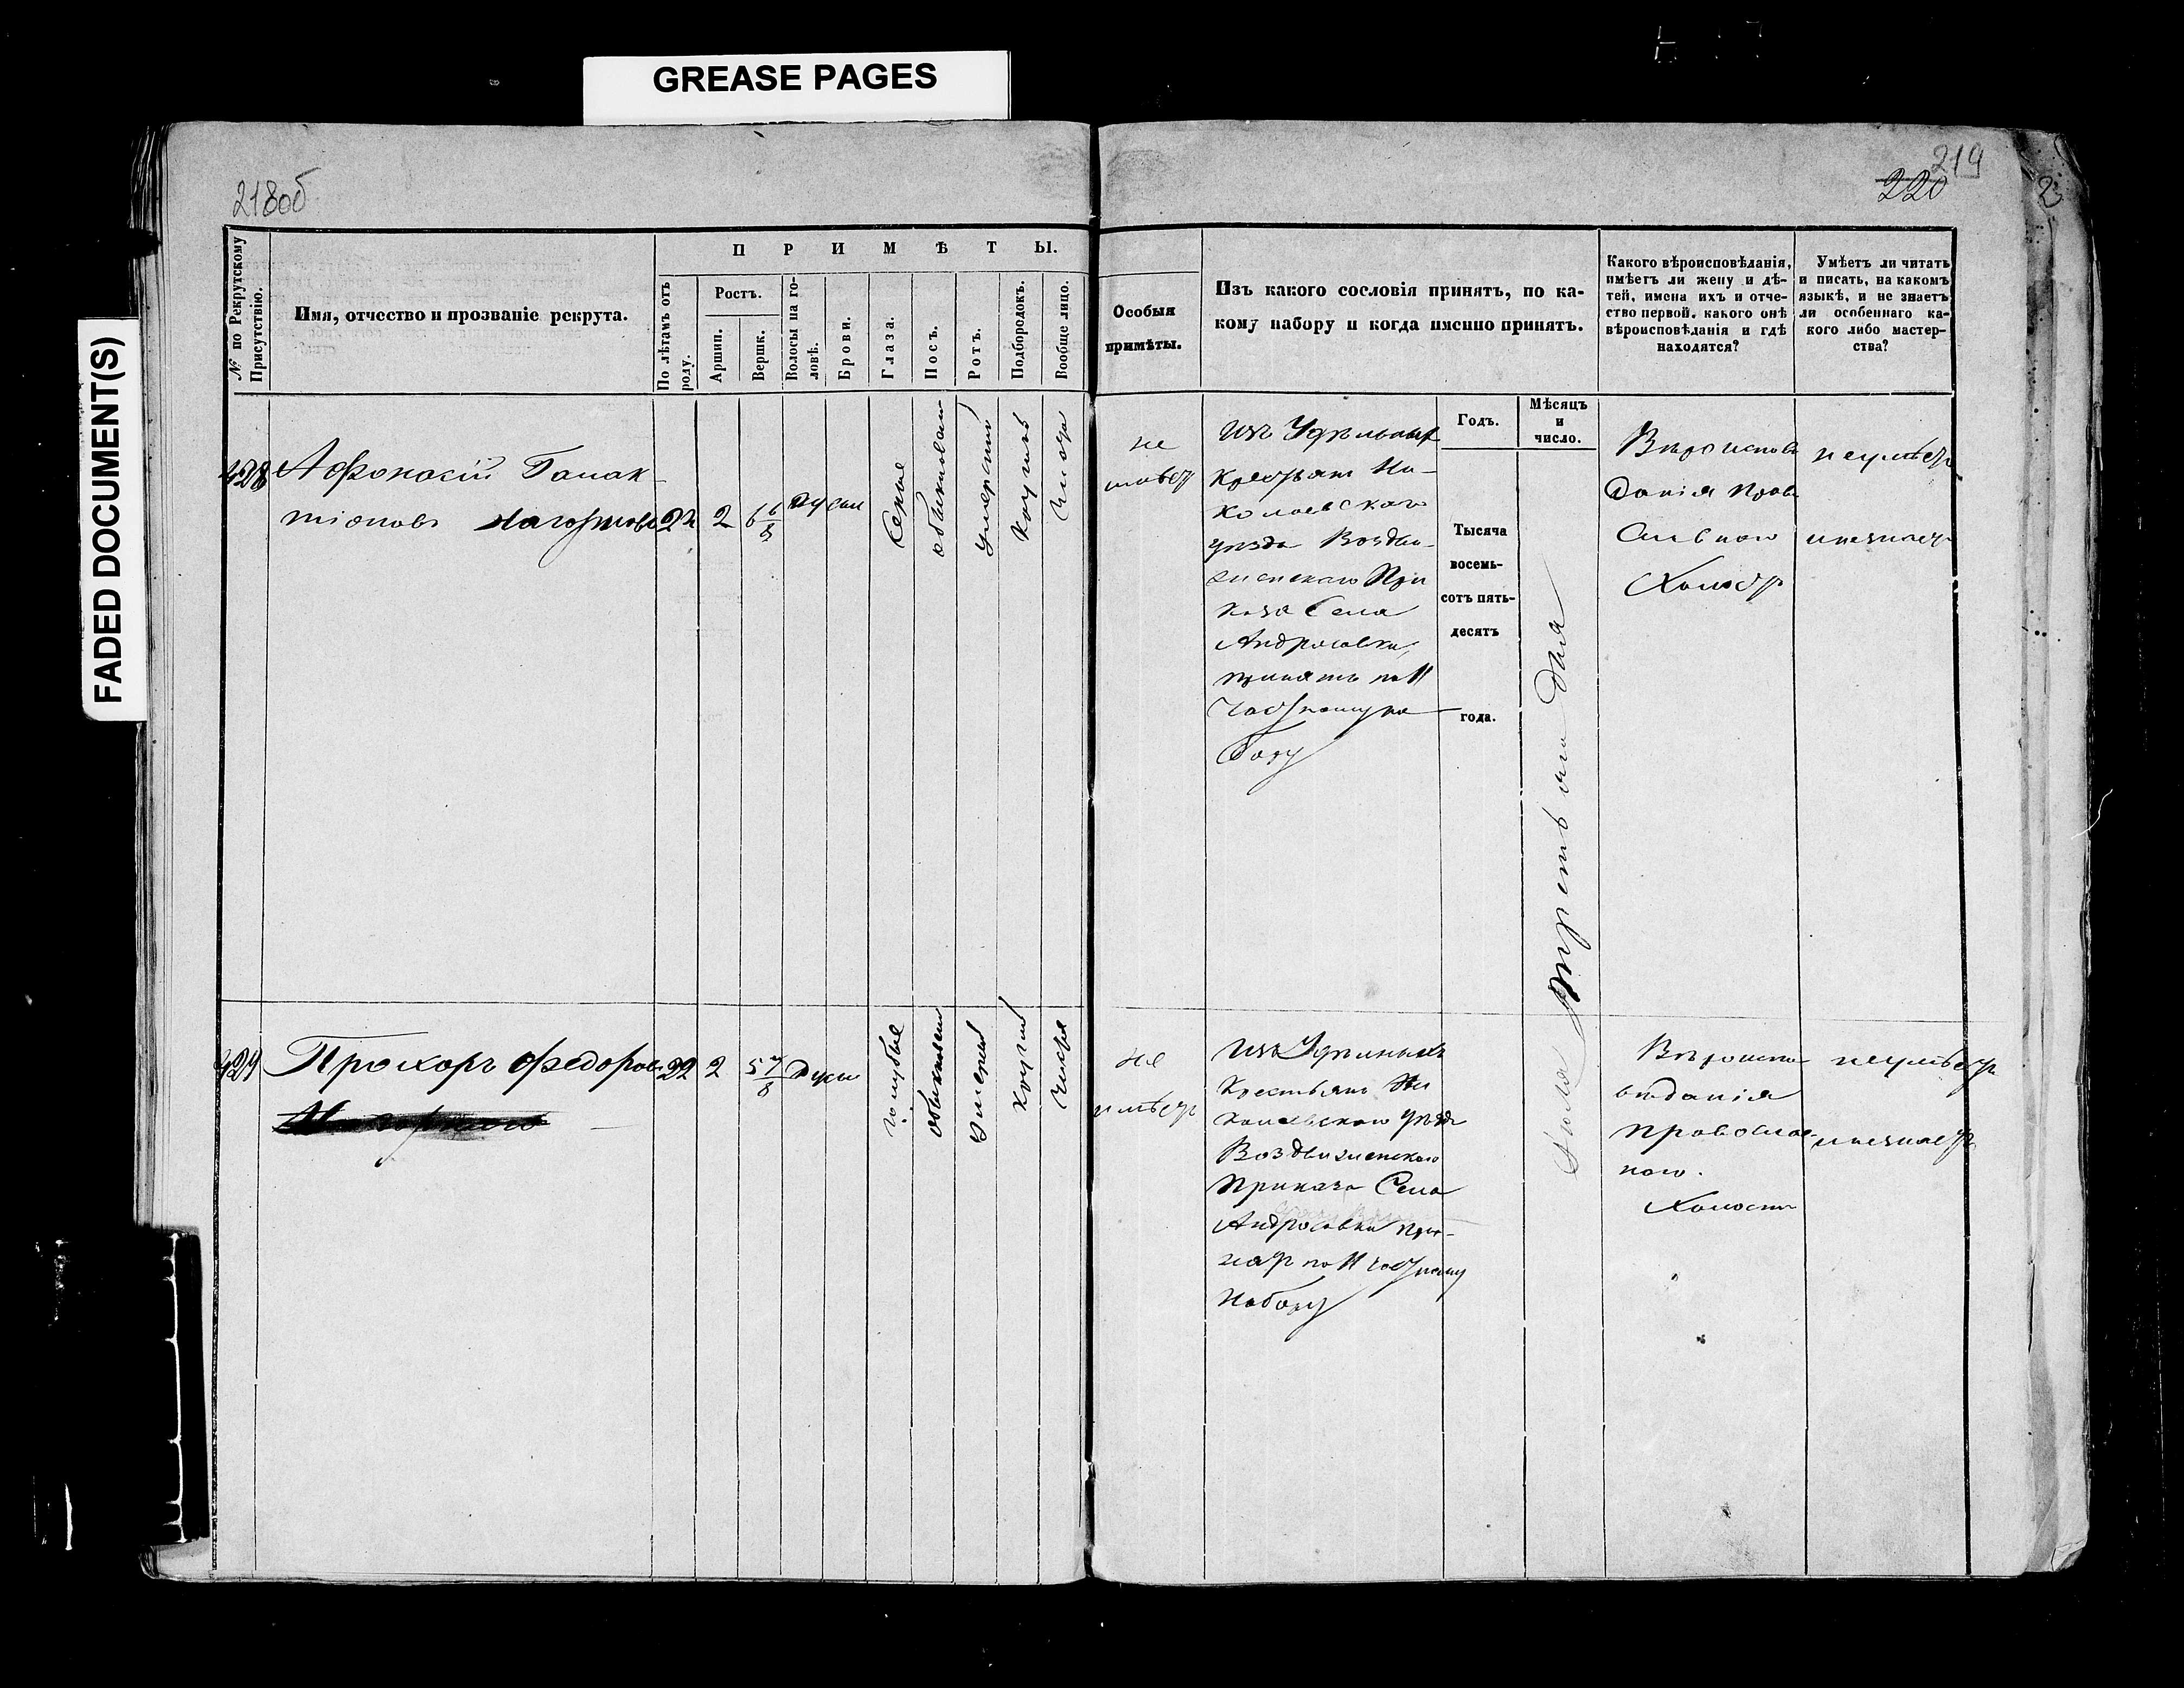 GREASE PAGES
FADED DOCUMENT(S)
218об
219
220
№ по Рекрутскому Присутствію.
Имя, отчество и прозваніе рекрута.
П Р И М Ѣ Т Ы.
По лѣтамъ отъ роду.
Ростъ.
Аршин.
Вершк.
Волосы на го-
ловѣ.
Брови.
Глаза.
Носъ.
Ротъ.
Подбородокъ.
Вообще лицо.
Особыя
примѣты.
Изъ какого сословія принятъ, по ка-
кому набору и когда именно принятъ.
Годъ.
Мѣсяцъ
и
число.
Какого вѣроисповѣданія,
имѣетъ ли жену и дѣ-
тей, имена ихъ и отче-
ство первой, какого онѣ
вѣроисповѣданія и гдѣ
находятся?
Умѣетъ ли читать
и писать, на какомъ
языкѣ, и не знаетъ
ли особеннаго ка-
кого либо мастер-
ства?
428
Афонасій Галак
тіоновъ
22
2
6 6/8
русыи
серые
обыкновен
умерѣнный
круглый
чистое
не
имѣет
Изъ Удельных
Крестьян Ни-
колаевского
уезда Воздви-
женского При
каза Села
Андросовки,
принятъ по 11
Частному на
бору
Тысяча
восемь-
сотъ пять-
десятъ
года.
Июля третьяго дня
Вероиспове
данія Прав
славного
Холост
неумѣет
инезнает
429
Прохоръ Федоровъ
22
2
5 7/8
русы
голубые
обыкновен
умерен
круглый
чистое
не
имѣет
Изъ Удельныхъ
Крестьянъ Ни
колаевскаго уезда
Воздвиженского
Приказа Села
Андросовки При-
нят по 11 частному
Набору
Вероиспо
веданія
Православ-
ного.
Холостъ
неумѣет
инезнает